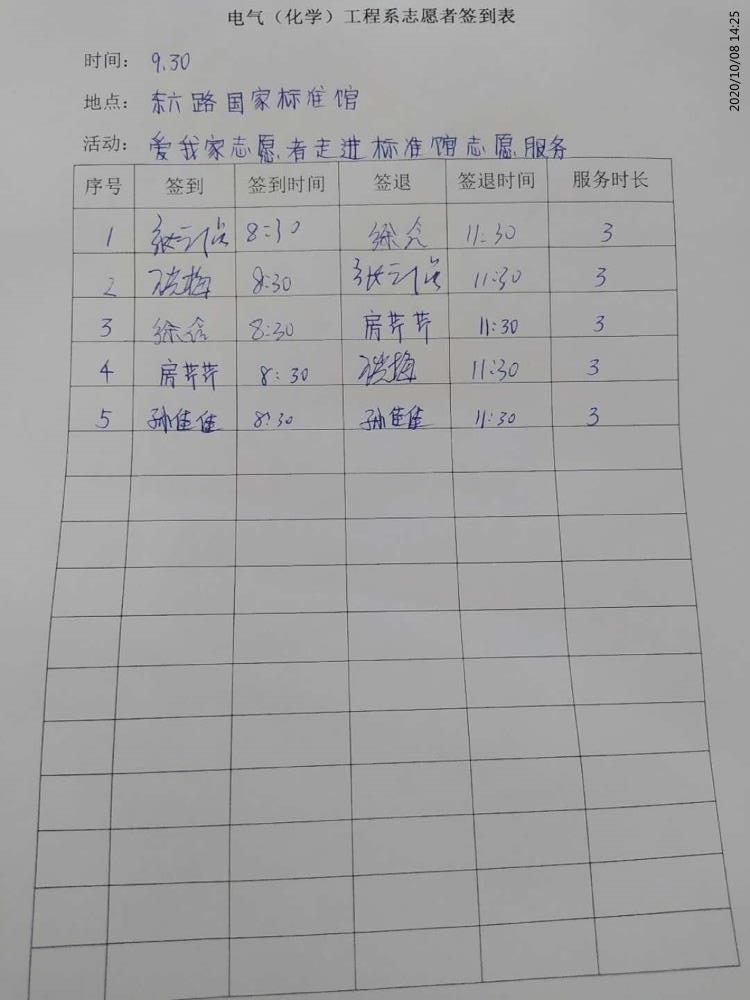 2020/10/08 14:25
电气（化学）工程系志愿者签到表
时间： 9.30
地点： 东六路国家标准馆
活动： 爱我家志愿者走进标准馆志愿服务
序号 签到 签到时间 签退 签退时间 服务时长
1 8:30 徐 11:30 3
2 梅 8:30 11:30 3
3 徐 8:30 房芹芹 11:30 3
4 房芹芹 8:30 梅 11:30 3
5 孙佳佳 8:30 孙佳佳 11:30 3